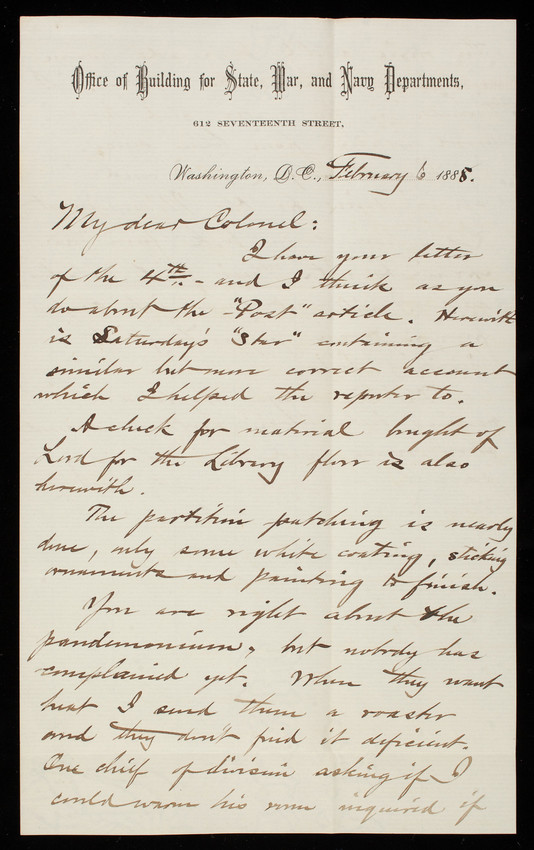 Office of Building for State, War, and Navy Departments,
612 SEVENTEENTH STREET,
Washington, D.C., February 6 1885.
My dear Colonel:
I have your letter
of the 4th. - and I think as you
do about the "Post" article. Herewith
is Saturday's "Star" containing a
similar but more correct account
which I helped the reporter to.
A check for material bought of
Lord for the Library floor is also
herewith.
The partition patching is nearly
done, only some white coating, sticking
ornaments and painting to finish.
You are right about the
pandemonium, but nobody has
complained yet. When they want
heat I send them a roaster
and they don't find it deficient.
One chief of division asking if I
could warm his room inquired if